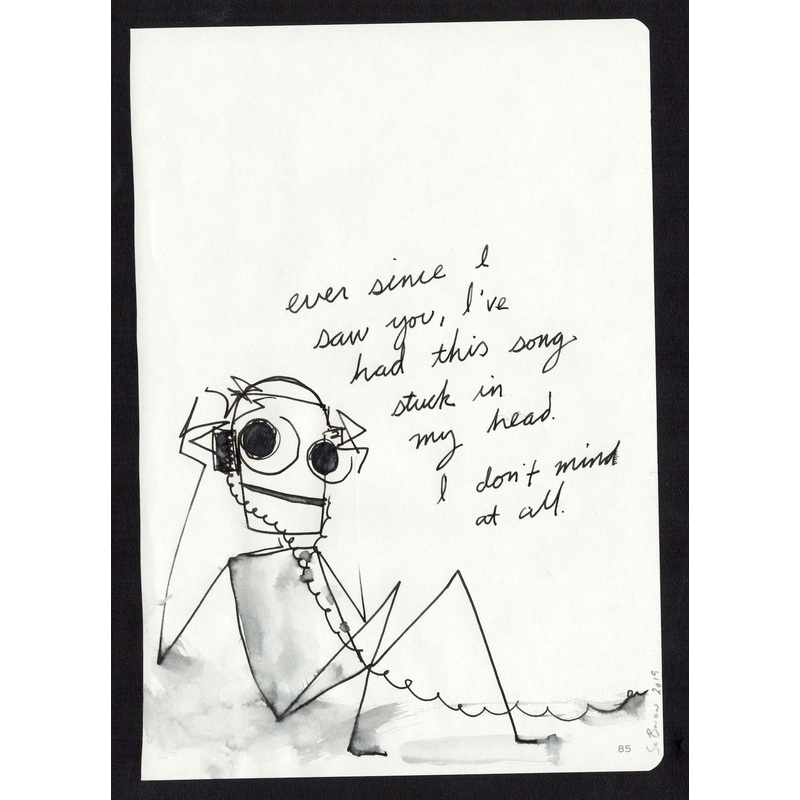 ever since I
saw you, I've
had this song
stuck in
my head.
I don't mind
at all.
85
2019